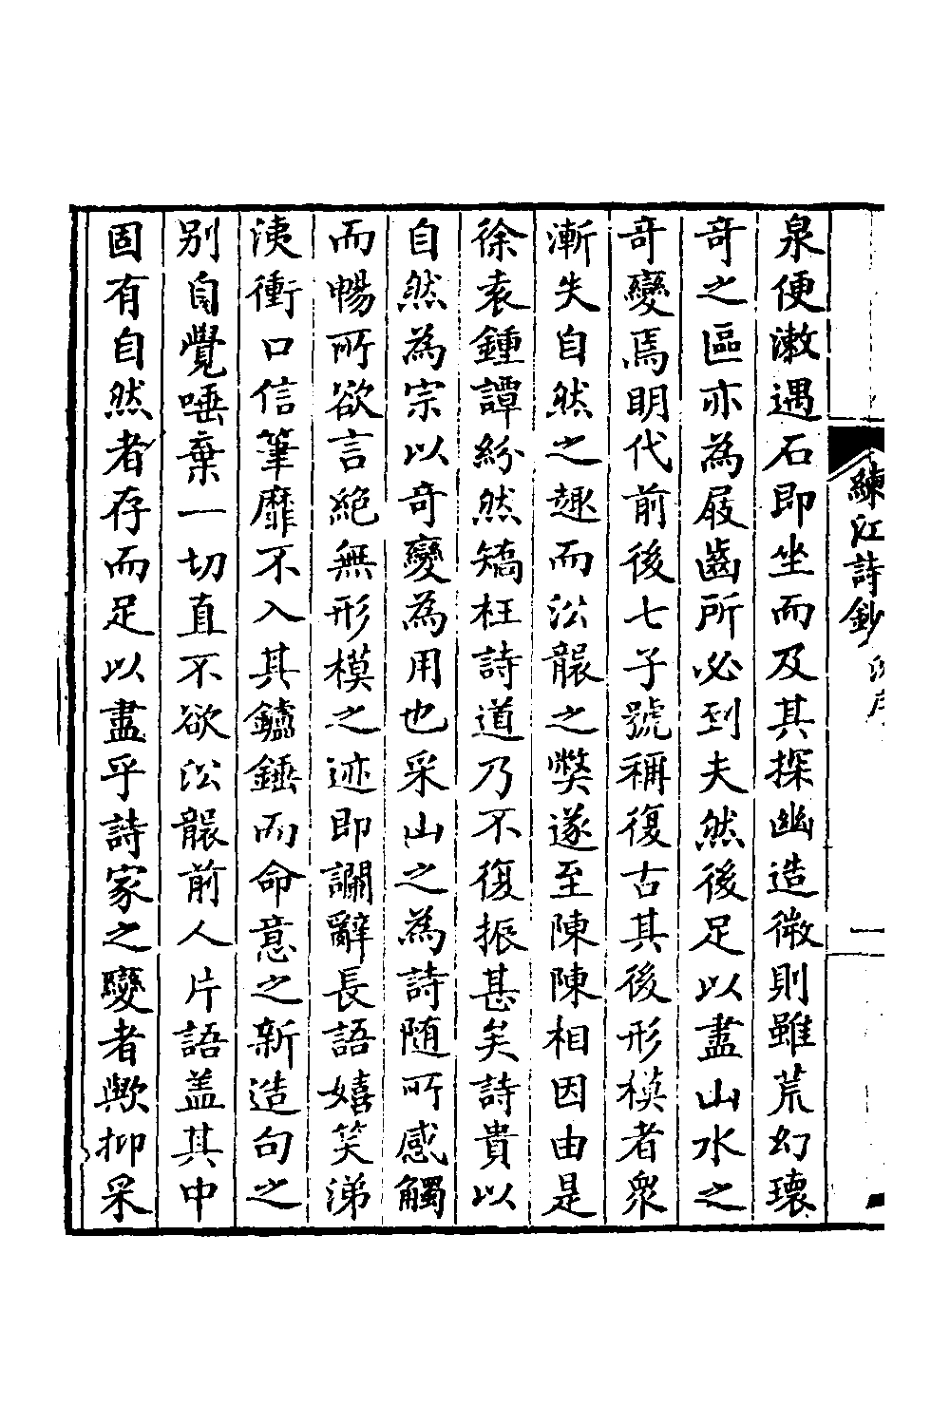 練江詩鈔
一
泉便漱遇石即坐而及其探幽造微則雖荒幻瓌
奇之區亦為屐齒所必到夫然後足以盡山水之
奇變焉明代前後七子號稱復古其後形模者衆
漸失自然之趣而㳂襲之獘遂至陳陳相因由是
徐袁鍾譚紛然矯枉詩道乃不復振甚矣詩貴以
自然為宗以奇變為用也采山之為詩随所感觸
而暢所欲言絶無形模之迹即讕辭長語嬉笑涕
洟衝口信筆靡不入其鑪錘而命意之新造句之
别自覺唾棄一切直不欲㳂襲前人片語盖其中
固有自然者存而足以盡乎詩家之變者歟抑采